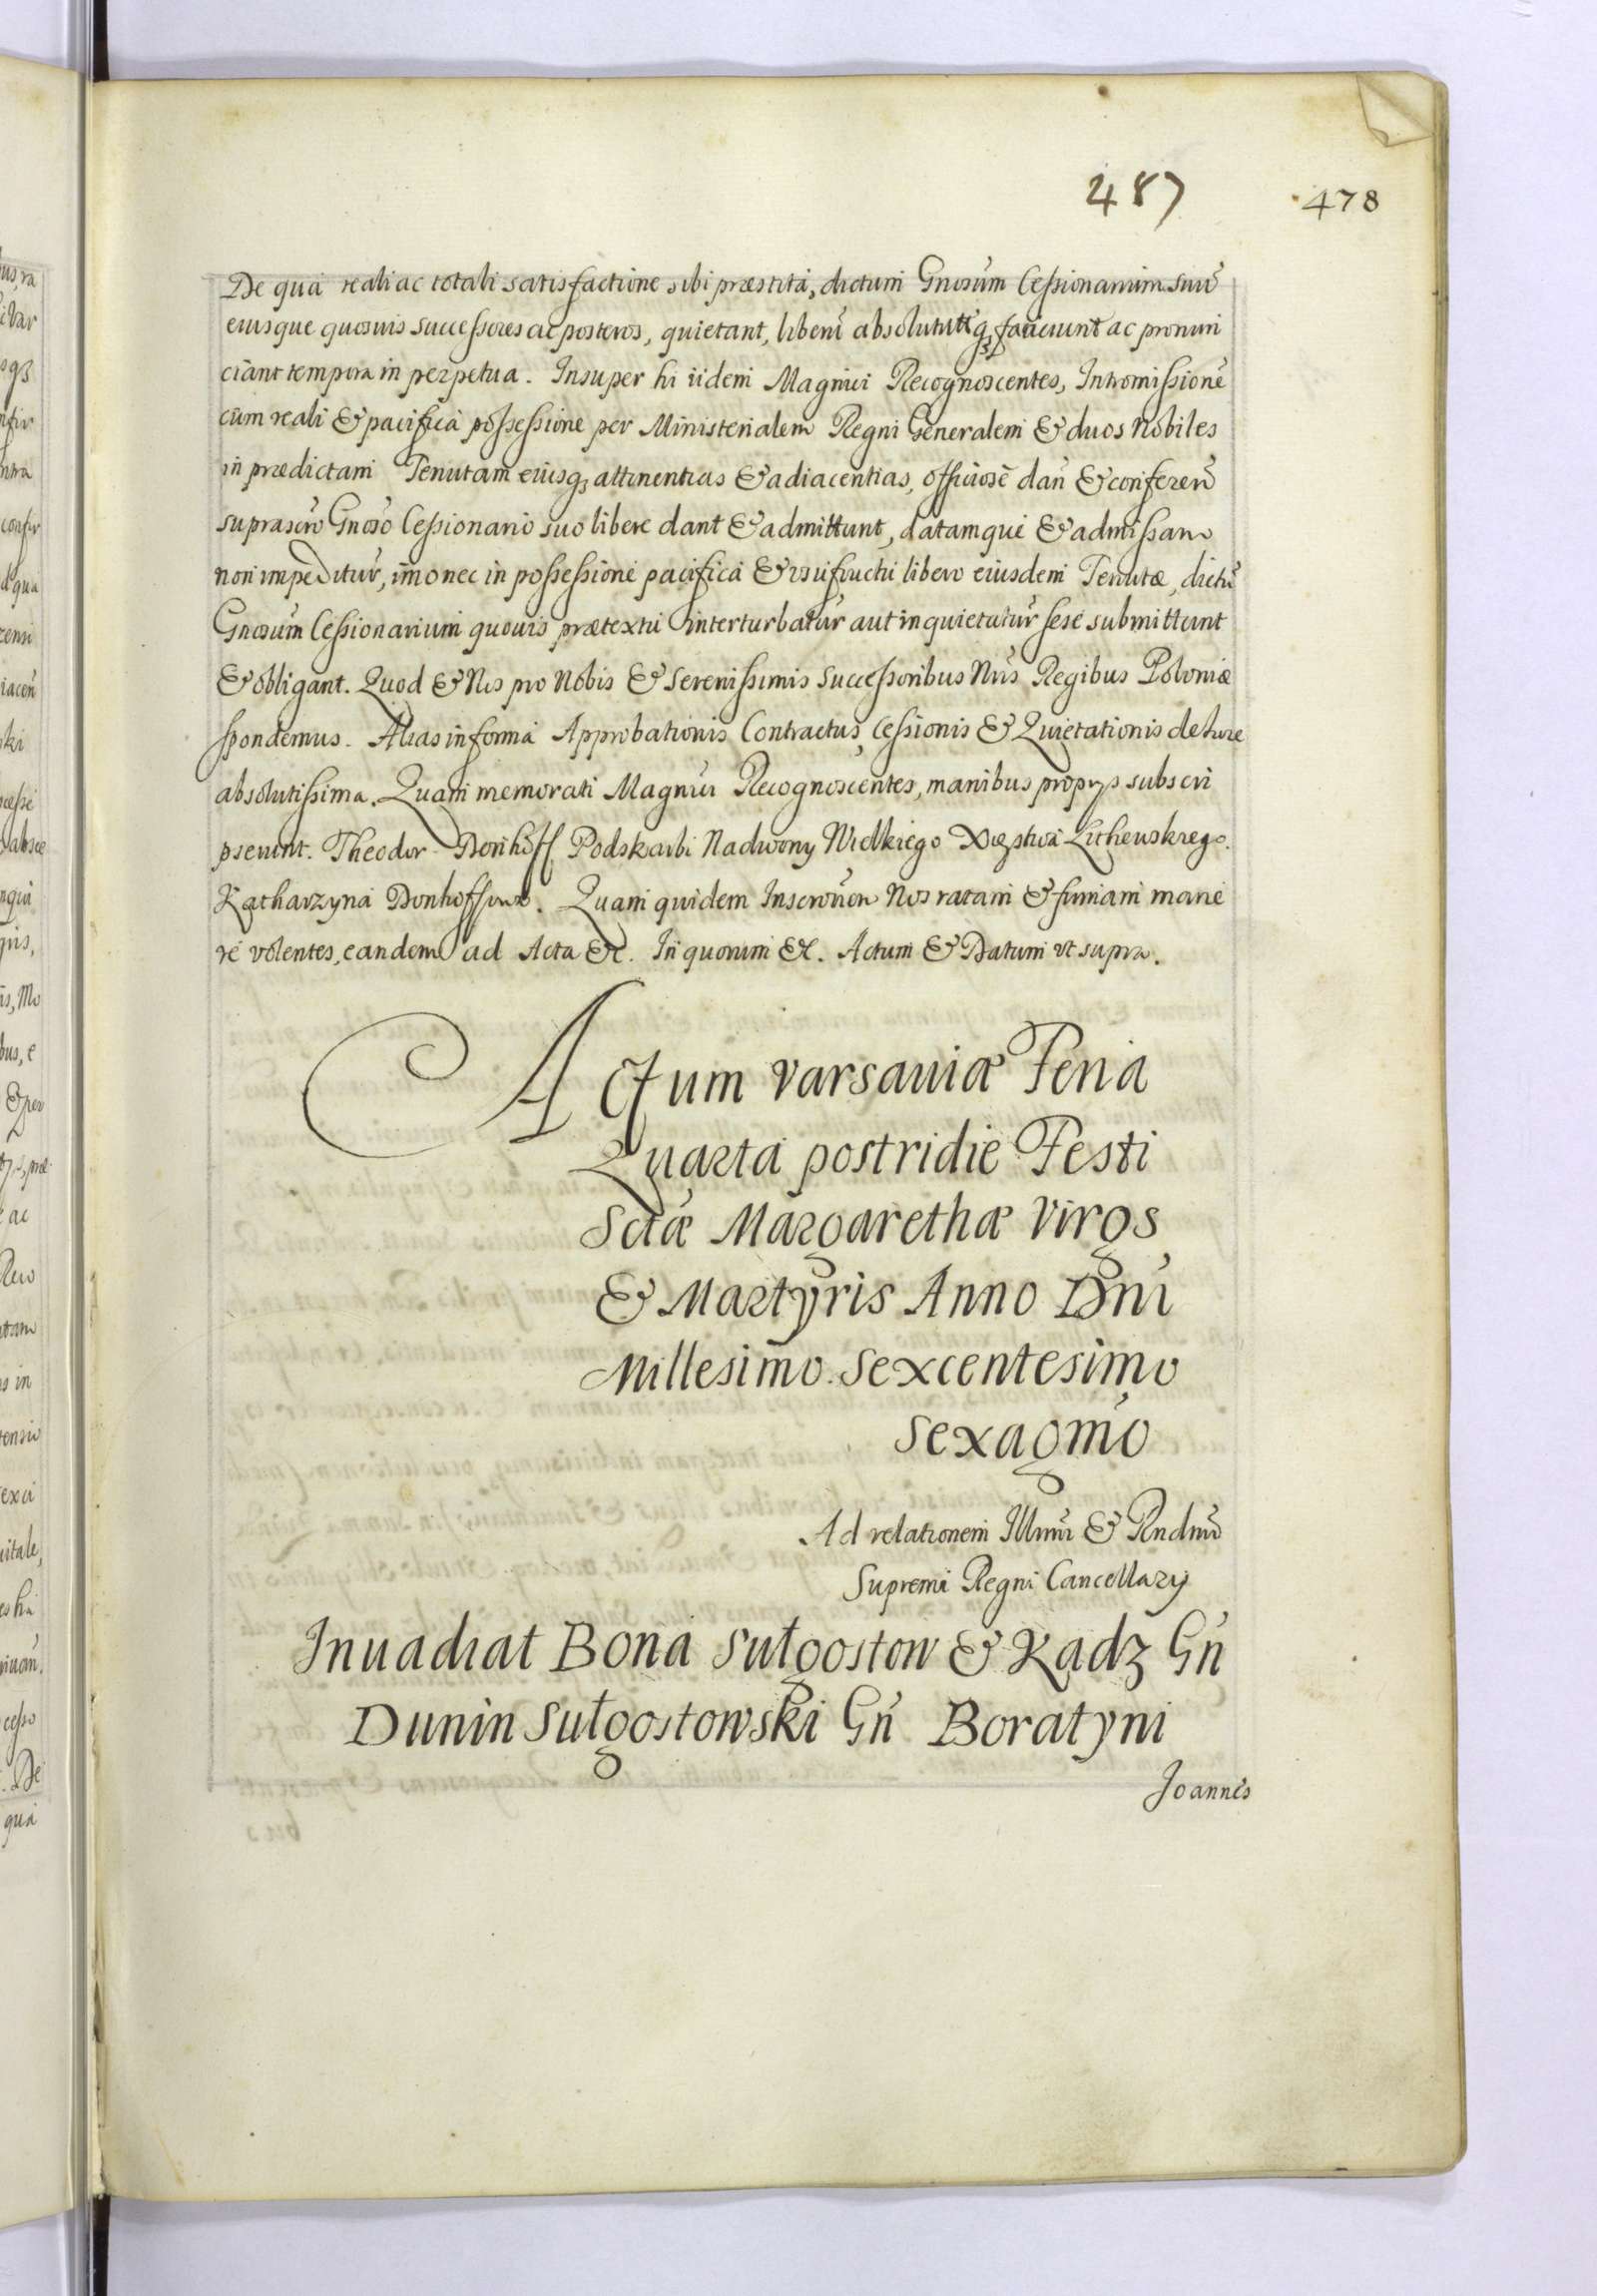 487 478
De qua reali ac totali satisfactione sibi præstita, dictum Gnosum Cessionarium suũ
eiusque quosuis successores ac posteros, quietant, liberũ absolutũ q3 faciunt ac pronun
ciant tempora in perpetua. Insuper hi iidem Magnici Recognoscentes, Intromissionẽ
cum reali & pacifica possessione per Ministerialem Regni Generalem & duos Nobiles
in prædictam Tenutam eiusq3 attinentias & adiacentias, officiose dañ & conferẽñ
suprascro Gnoso Cessionario suo libere dant & admittunt, datamque & admissam
non impeditur, imo nec in possessione pacifica & vsufructu libero eiusdem Tenutæ, dictũ
Gnosum Cessionarium quouis prætextu interturbatur aut inquietatur sese submittunt
& obligant. Quod & Nos pro Nobis & Serenissimis Successoribus Nris Regibus Poloniæ
spondemus. Alias in forma Approbationis Contractus, Cessionis & Quietationis de Iure
absolutissima. Quam memorati Magnici Recognoscentes, manibus proprys subscri
pserunt. Theodor Donhoff Podskarbi Nadworny Wielkiego Xięstwa Lithewskiego.
Katharzyna Donhoffowa. Quam quidem Inscrõnem Nos ratam & firmam mane
re volentes, eandem ad Acta &c. In quorum &c. Actum & Datum vt supra.
Actum Varsauiæ Feria
Quarta postridie Festi
Sctæ Margarethæ Virgs
& Martyris Anno Dñi
Millesimo Sexcentesimo
Sexagmo
Ad relationem Illmi & Rndmi
Supremi Regni Cancellary
Inuadiat Bona Sułgostow & Kądz Gñ
Dunin Sułgostowski Gñ Boratyni
Joannes